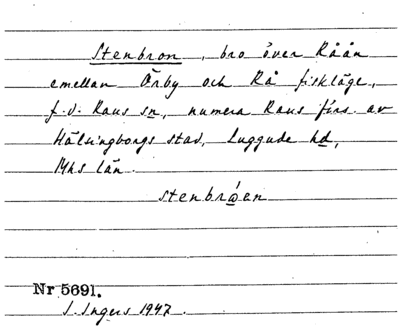 Stenbron, bro över Råån
emellan Örby och Rå fiskläge,
f.d. Raus sn, numera Raus förs. av
Hälsingborgs stad, Luggude hd,
Mhs län.
stenbrǻen
Nr 5691.
I. Ingers 1947.